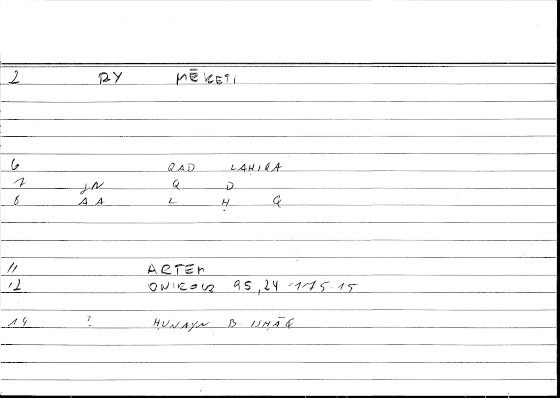 2 RY MĒKETI
6 QAD LAḤIQA
7 JN Q D
8 AA L Ḥ Q
11 ARTEM
12 ONIROCR 95,24 -175.15
14 ? ḤUNAYN B ISḤĀQ